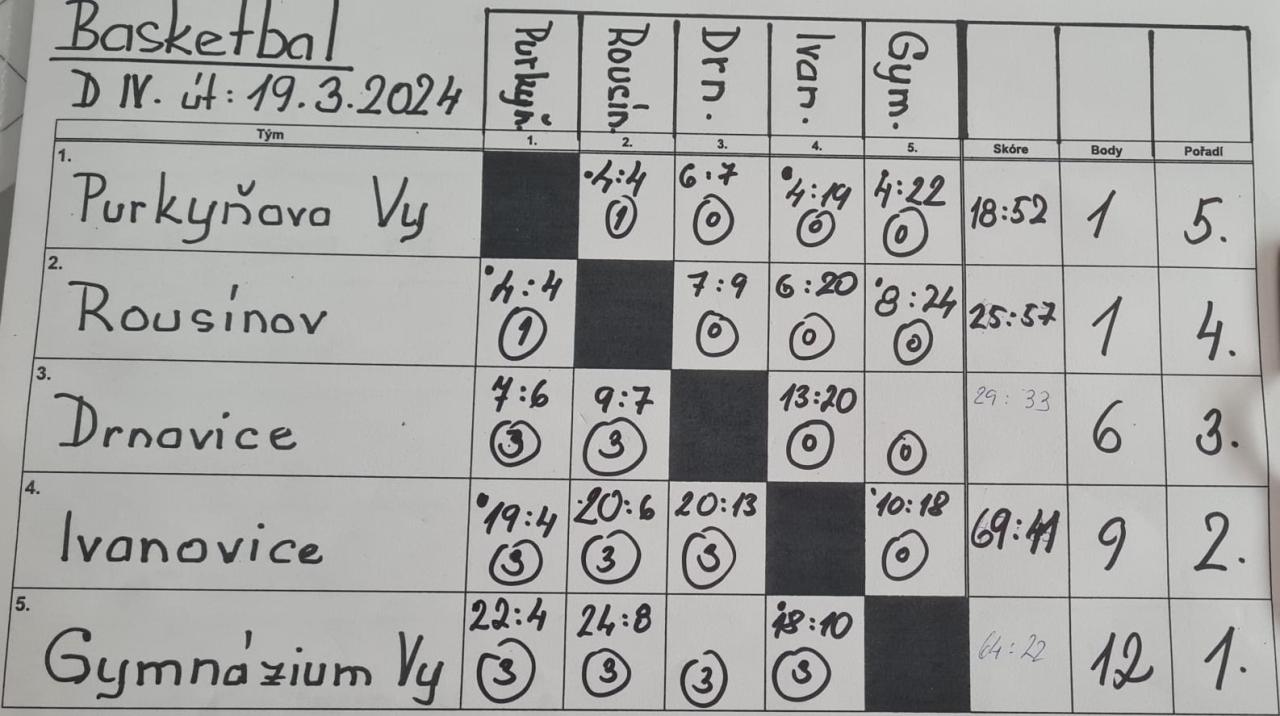 Basketbal
D IV. út: 19.3.2024
Purkyň. Rousín. Drn. Ivan. Gym.
Tým 1. 2. 3. 4. 5. Skóre Body Pořadí
1. Purkyňova Vy 4:4 6:7 4:19 4:22 18:52 1 5.
1 0 0 0
2. Rousínov 4:4 7:9 6:20 8:24 25:57 1 4.
1 0 0 0
3. Drnovice 7:6 9:7 13:20 29:33 6 3.
3 3 0 0
4. Ivanovice 19:4 20:6 20:13 10:18 69:41 9 2.
3 3 3 0
5. Gymnázium Vy 22:4 24:8 18:10 64:22 12 1.
3 3 3 3